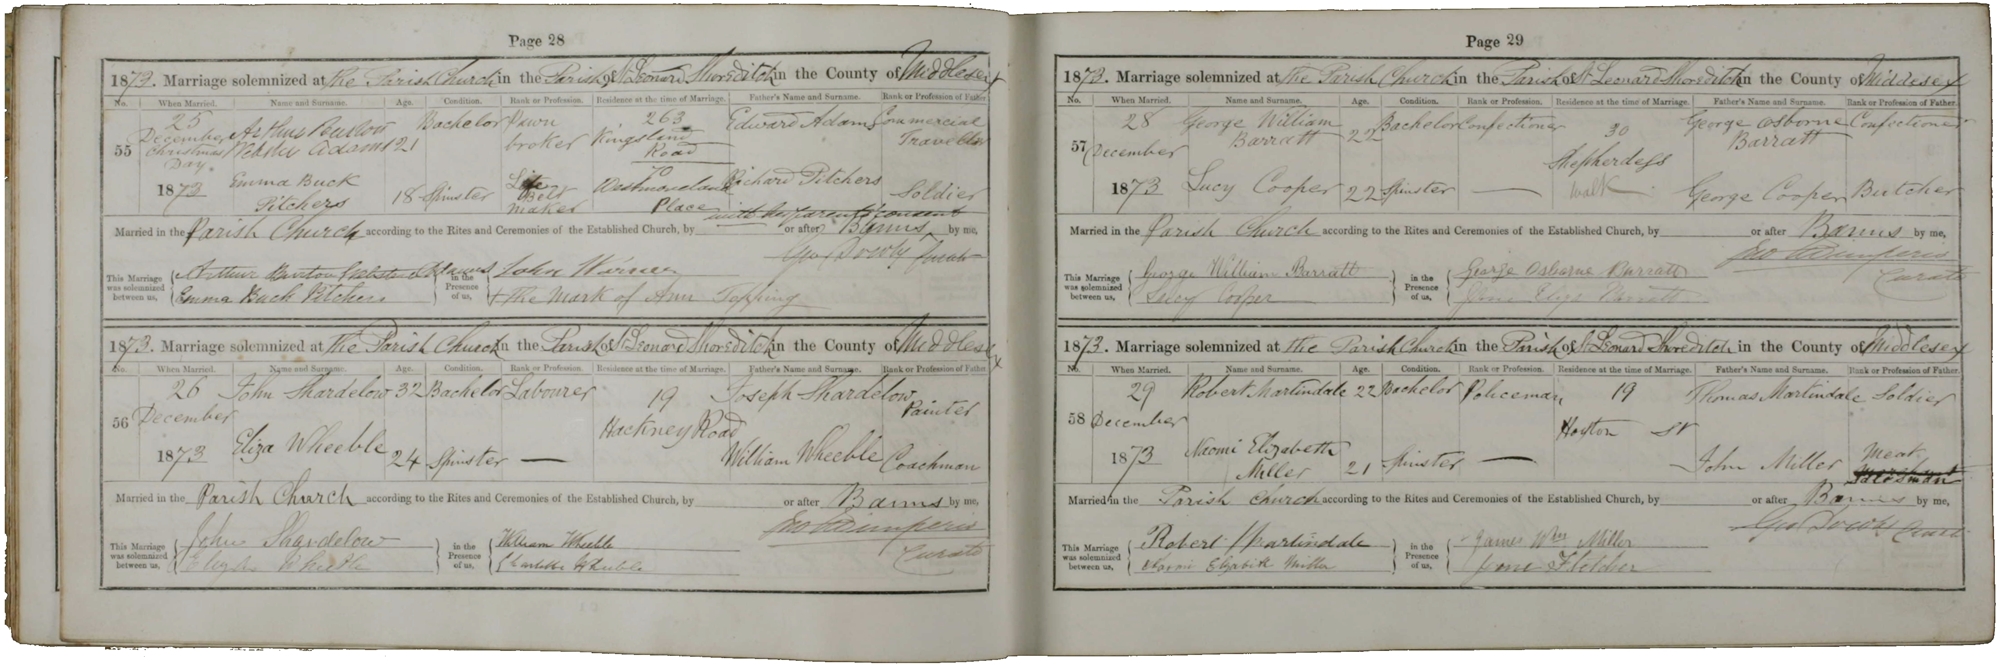 Page 28
1873. Marriage solemnized at the Parish Church in the Parish of St Leonard Shoreditch in the County of Middlesex
No. When Married. Name and Surname. Age. Condition. Rank or Profession. Residence at the time of Marriage. Father's Name and Surname. Rank or Profession of Father.
55 25 December Christmas Day 1873
Arthur Burlow Webster Adams 21 Bachelor Pawn broker 263 Kingsland Road Edward Adams Commercial Traveller
Emma Buck Pitchers 18 Spinster Life Belt maker 70 Westmoreland Place Richard Pitchers Soldier
with her parents consent
Married in the Parish Church according to the Rites and Ceremonies of the Established Church, by or after Banns, by me,
Geo Curate
This Marriage was solemnized between us, Arthur Burlow Webster Adams in the Presence of us, John
Emma Buck Pitchers + the mark of Ann Topping
1873. Marriage solemnized at the Parish Church in the Parish of St Leonard Shoreditch in the County of Middlesex
No. When Married. Name and Surname. Age. Condition. Rank or Profession. Residence at the time of Marriage. Father's Name and Surname. Rank or Profession of Father.
56 26 December 1873
John Shardelow 32 Bachelor Labourer 19 Hackney Road Joseph Shardelow Painter
Eliza Wheeble 24 Spinster — William Wheeble Coachman
Married in the Parish Church according to the Rites and Ceremonies of the Established Church, by or after Banns by me,
Curate
This Marriage was solemnized between us, John Shardelow in the Presence of us, William Wheeble
Wheeble Charlotte Wheeble
Page 29
1873. Marriage solemnized at the Parish Church in the Parish of St Leonard Shoreditch in the County of Middlesex
No. When Married. Name and Surname. Age. Condition. Rank or Profession. Residence at the time of Marriage. Father's Name and Surname. Rank or Profession of Father.
57 28 December 1873
George William Barratt 22 Bachelor Confectioner 30 Shepherdess walk George Osborne Barratt Confectioner
Lucy Cooper 22 Spinster — George Cooper Butcher
Married in the Parish Church according to the Rites and Ceremonies of the Established Church, by or after Banns by me,
Curate
This Marriage was solemnized between us, George William Barratt in the Presence of us, George Osborne Barratt
Lucy Cooper Jane Eliza Barratt
1873. Marriage solemnized at the Parish Church in the Parish of St Leonard Shoreditch in the County of Middlesex
No. When Married. Name and Surname. Age. Condition. Rank or Profession. Residence at the time of Marriage. Father's Name and Surname. Rank or Profession of Father.
58 29 December 1873
Robert Martindale 22 Bachelor Policeman 19 Hoxton St Thomas Martindale Soldier
Naomi Elizabeth Miller 21 Spinster — John Miller Meat Salesman
Married in the Parish Church according to the Rites and Ceremonies of the Established Church, by or after Banns by me,
Geo Curate
This Marriage was solemnized between us, Robert Martindale in the Presence of us, James Wm Miller
Naomi Elizabeth Miller Jane Fletcher